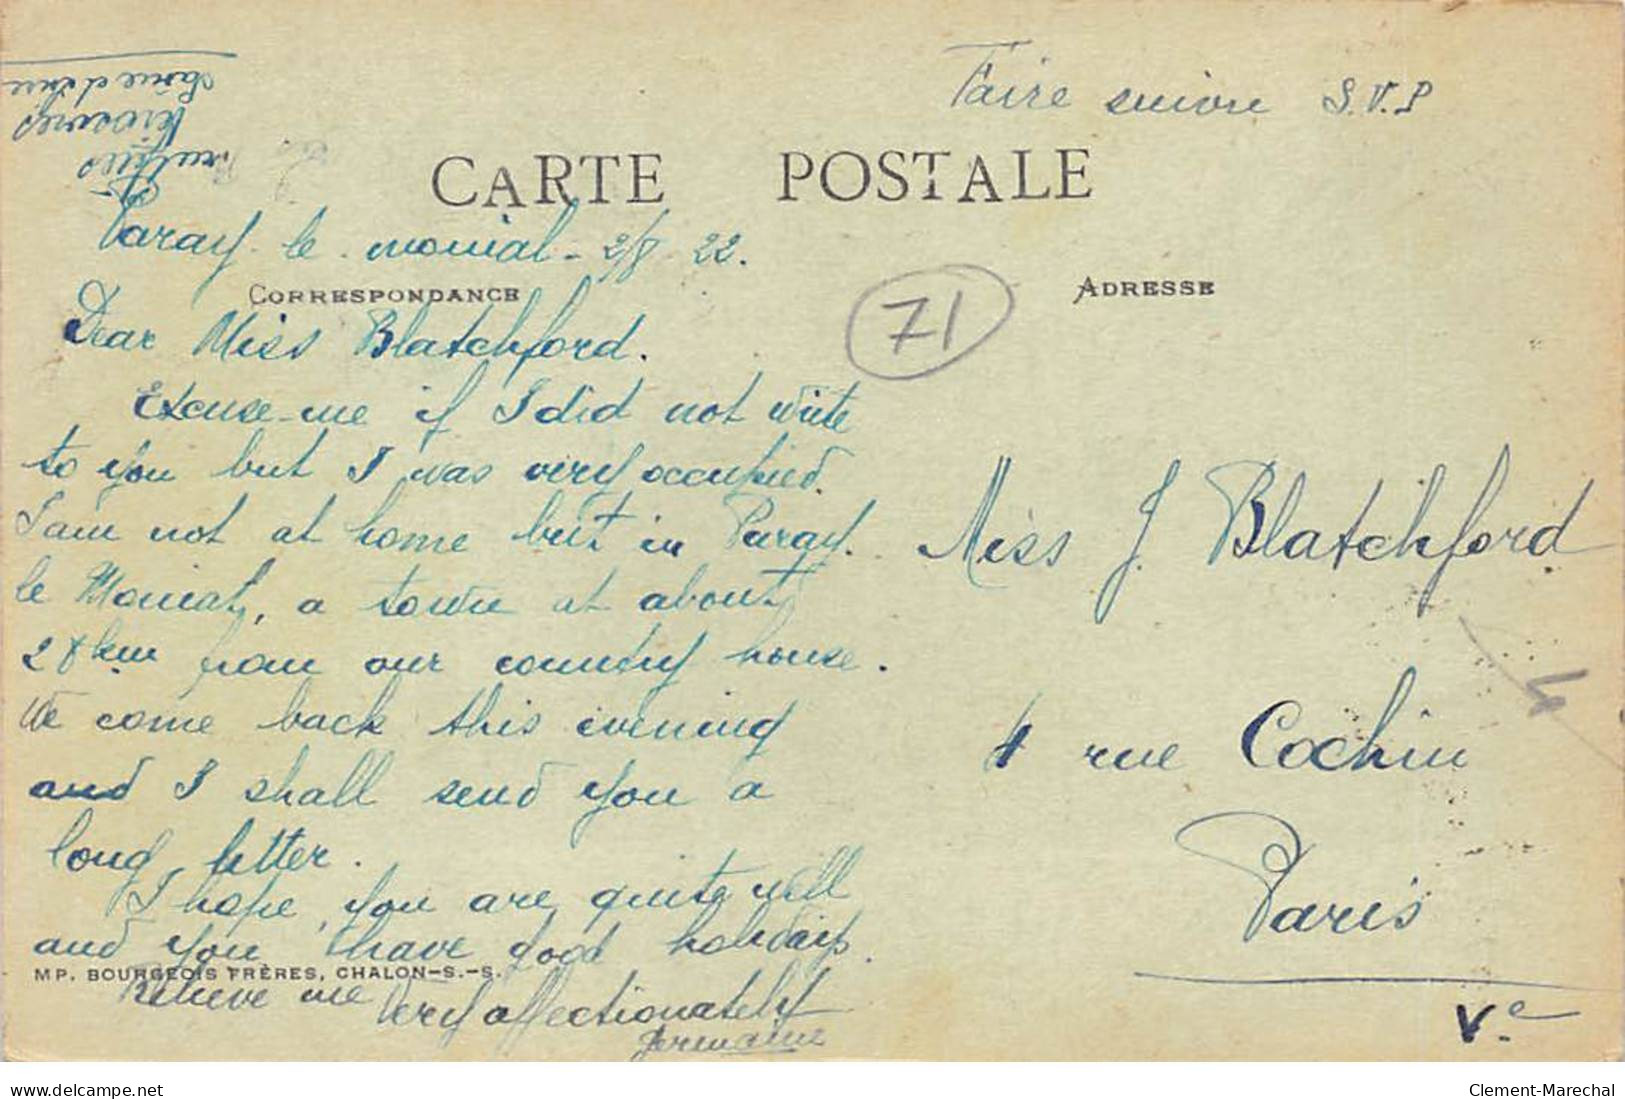 Faire suivre S.V.P
Saône et Loire
CARTE POSTALE
Paray-le-monial - 2/8 22.
CORRESPONDANCE
71
ADRESSE
Dear Miss Blatchford.
Excuse-me if I did not write
to you but I was very occupied.
I am not at home but in Paray.
le Monial, a town at about
28 km from our country house.
We come back this evening
and I shall send you a
long letter.
I hope you are quite well
and you have good holidays.
MP. BOURGEOIS FRÈRES, CHALON-S.-S.
Believe me
Very affectionately
Germaine
Miss J. Blatchford
4 rue Cochin
Paris
Ve
delcampe.net
Clement-Marechal